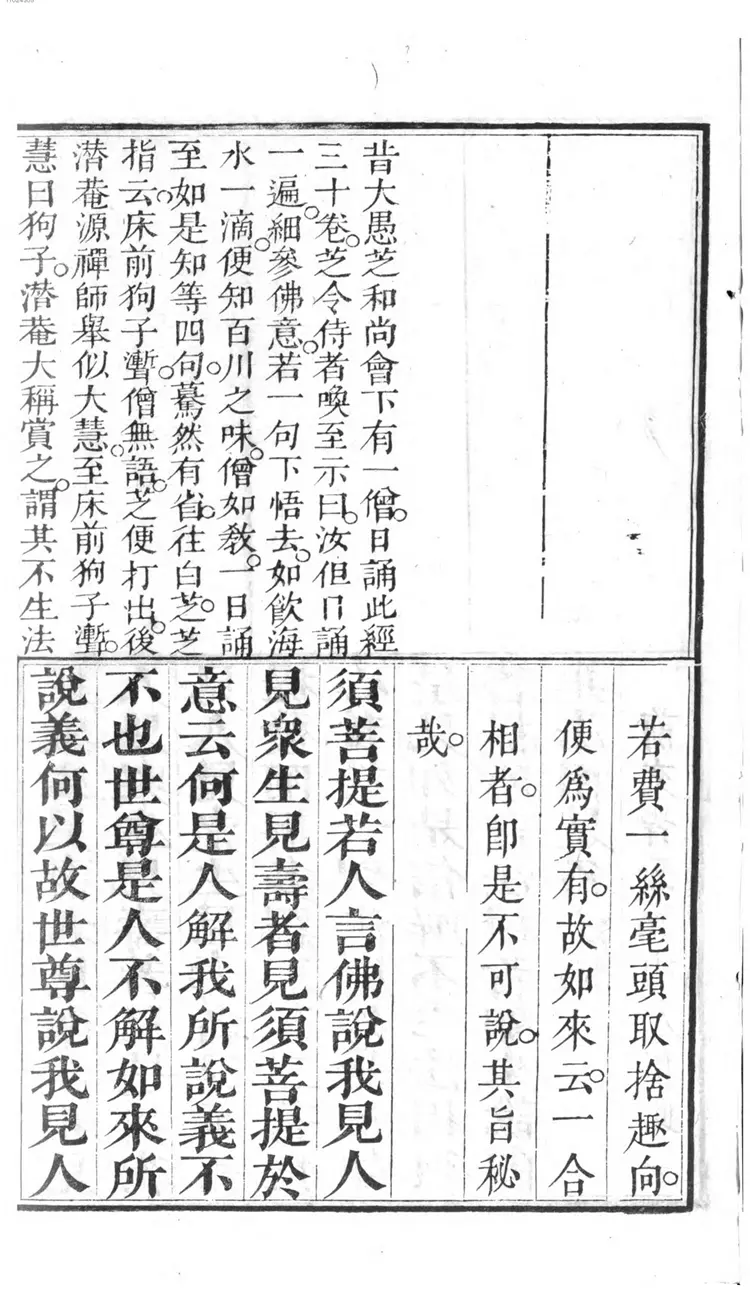 昔大愚芝和尚會下有一僧。日誦此經
三十卷。芝令侍者喚至示曰。汝但日誦
一遍。細參佛意。若一句下悟去。如飲海
水一滴。便知百川之味。僧如教。一日誦
至如是知等四句。驀然有省。往白芝。芝
指云。床前狗子漸。僧無語。芝便打出。後
潜菴源禪師舉似大慧。至床前狗子漸。
慧曰狗子。潜菴大稱賞之。謂其不生法
若費一絲毫頭取捨趣向。
便爲實有。故如來云。一合
相者。即是不可說。其旨秘
哉。
須菩提若人言佛說我見人
見衆生見壽者見須菩提於
意云何是人解我所說義不
不也世尊是人不解如來所
說義何以故世尊說我見人